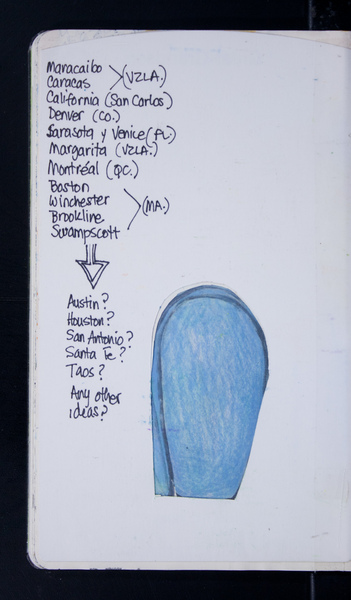 Maracaibo
Caracas
(VZLA.)
California (San Carlos)
Denver (CO.)
Sarasota y Venice (FL.)
Margarita (VZLA.)
Montréal (QC.)
Boston
Winchester
Brookline
Swampscott
(MA.)
Austin?
Houston?
San Antonio?
Santa Fe?
Taos?
Any other
ideas?